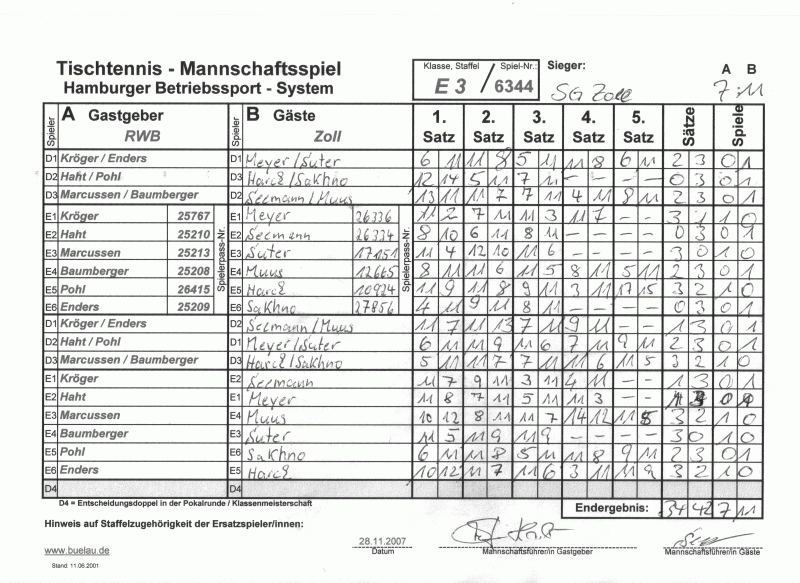 Tischtennis - Mannschaftsspiel
Hamburger Betriebssport - System
Klasse, Staffel Spiel-Nr.:
E 3 / 6344
Sieger: A B
SG Zoll 7 : 11
Spieler A Gastgeber RWB Spieler B Gäste Zoll 1. Satz 2. Satz 3. Satz 4. Satz 5. Satz Sätze Spiele
D1 Kröger / Enders D1 Meyer / Suter 6 11 11 8 5 11 11 8 6 11 2 3 0 1
D2 Haht / Pohl D3 Harcß / Sakhno 12 14 5 11 7 11 - - - - 0 3 0 1
D3 Marcussen / Baumberger D2 Seemann / Muus 13 11 11 7 7 11 4 11 8 11 2 3 0 1
E1 Kröger 25767 E1 Meyer 26336 11 2 7 11 11 3 11 7 - - 3 1 1 0
E2 Haht 25210 E2 Seemann 26334 8 10 6 11 8 11 - - - - 0 3 0 1
E3 Marcussen 25213 E3 Suter 17151 11 4 12 10 11 6 - - - - 3 0 1 0
E4 Baumberger 25208 E4 Muus 12665 8 11 11 6 11 5 8 11 5 11 2 3 0 1
E5 Pohl 26415 E5 Harcß 10924 11 9 11 8 9 11 3 11 17 15 3 2 1 0
E6 Enders 25209 E6 Sakhno 27856 4 11 9 11 8 11 - - - - 0 3 0 1
Spielerpass-Nr. Spielerpass-Nr.
D1 Kröger / Enders D2 Seemann / Muus 11 7 11 13 7 11 9 11 - - 1 3 0 1
D2 Haht / Pohl D1 Meyer / Suter 6 11 11 9 11 6 7 11 9 11 2 3 0 1
D3 Marcussen / Baumberger D3 Harcß / Sakhno 5 11 11 7 7 11 11 6 11 5 3 2 1 0
E1 Kröger E2 Seemann 11 7 9 11 3 11 4 11 - - 1 3 0 1
E2 Haht E1 Meyer 11 8 7 11 5 11 11 3 - -
E3 Marcussen E4 Muus 10 12 8 11 11 7 14 12 11 8 3 2 1 0
E4 Baumberger E3 Suter 11 5 11 9 11 9 - - - - 3 0 1 0
E5 Pohl E6 Sakhno 6 11 11 8 5 11 11 8 9 11 2 3 0 1
E6 Enders E5 Harcß 10 12 11 7 11 6 3 11 11 9 3 2 1 0
D4 D4
D4 = Entscheidungsdoppel in der Pokalrunde / Klassenmeisterschaft
Endergebnis: 34 42 7 11
Hinweis auf Staffelzugehörigkeit der Ersatzspieler/innen:
www.buelau.de
28.11.2007
Datum Mannschaftsführer/in Gastgeber Mannschaftsführer/in Gäste
Stand: 11.06.2001